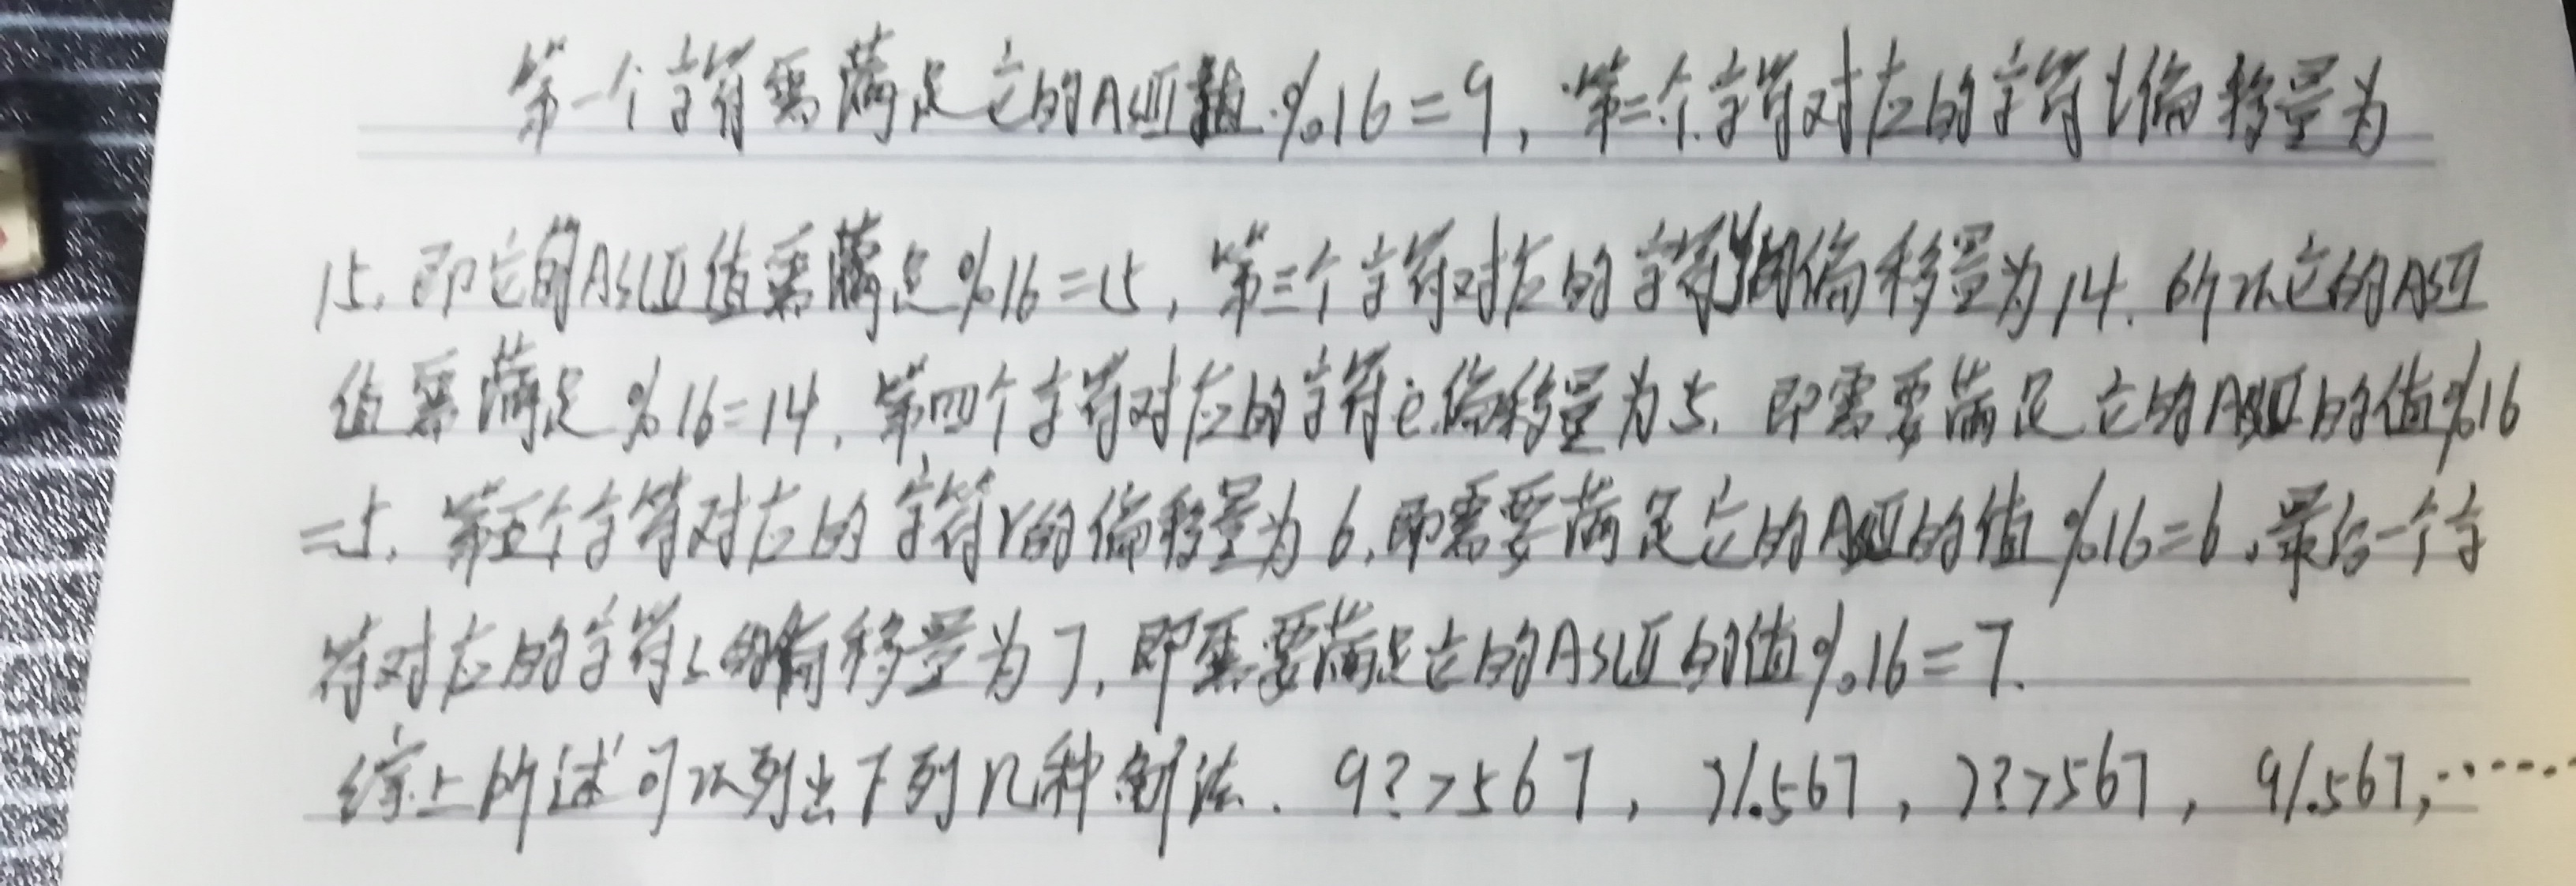 第一个字符需满足它的ASCII值%16=9，第二个字符对应的字符l偏移量为
15，即它的ASCII值需满足%16=15，第三个字符对应的字符的偏移量为14，所以它的ASCII
值需满足%16=14，第四个字符对应的字符e偏移量为5，即需要满足它的ASCII的值%16
=5，第五个字符对应的字符r的偏移量为6，即需要满足它的ASCII的值%16=6，最后一个字
符对应的字符s的偏移量为7，即需要满足它的ASCII的值%16=7.
综上所述可以列出下列几种解法. 9?>567, )/.567, )?>567, 9/.567,……